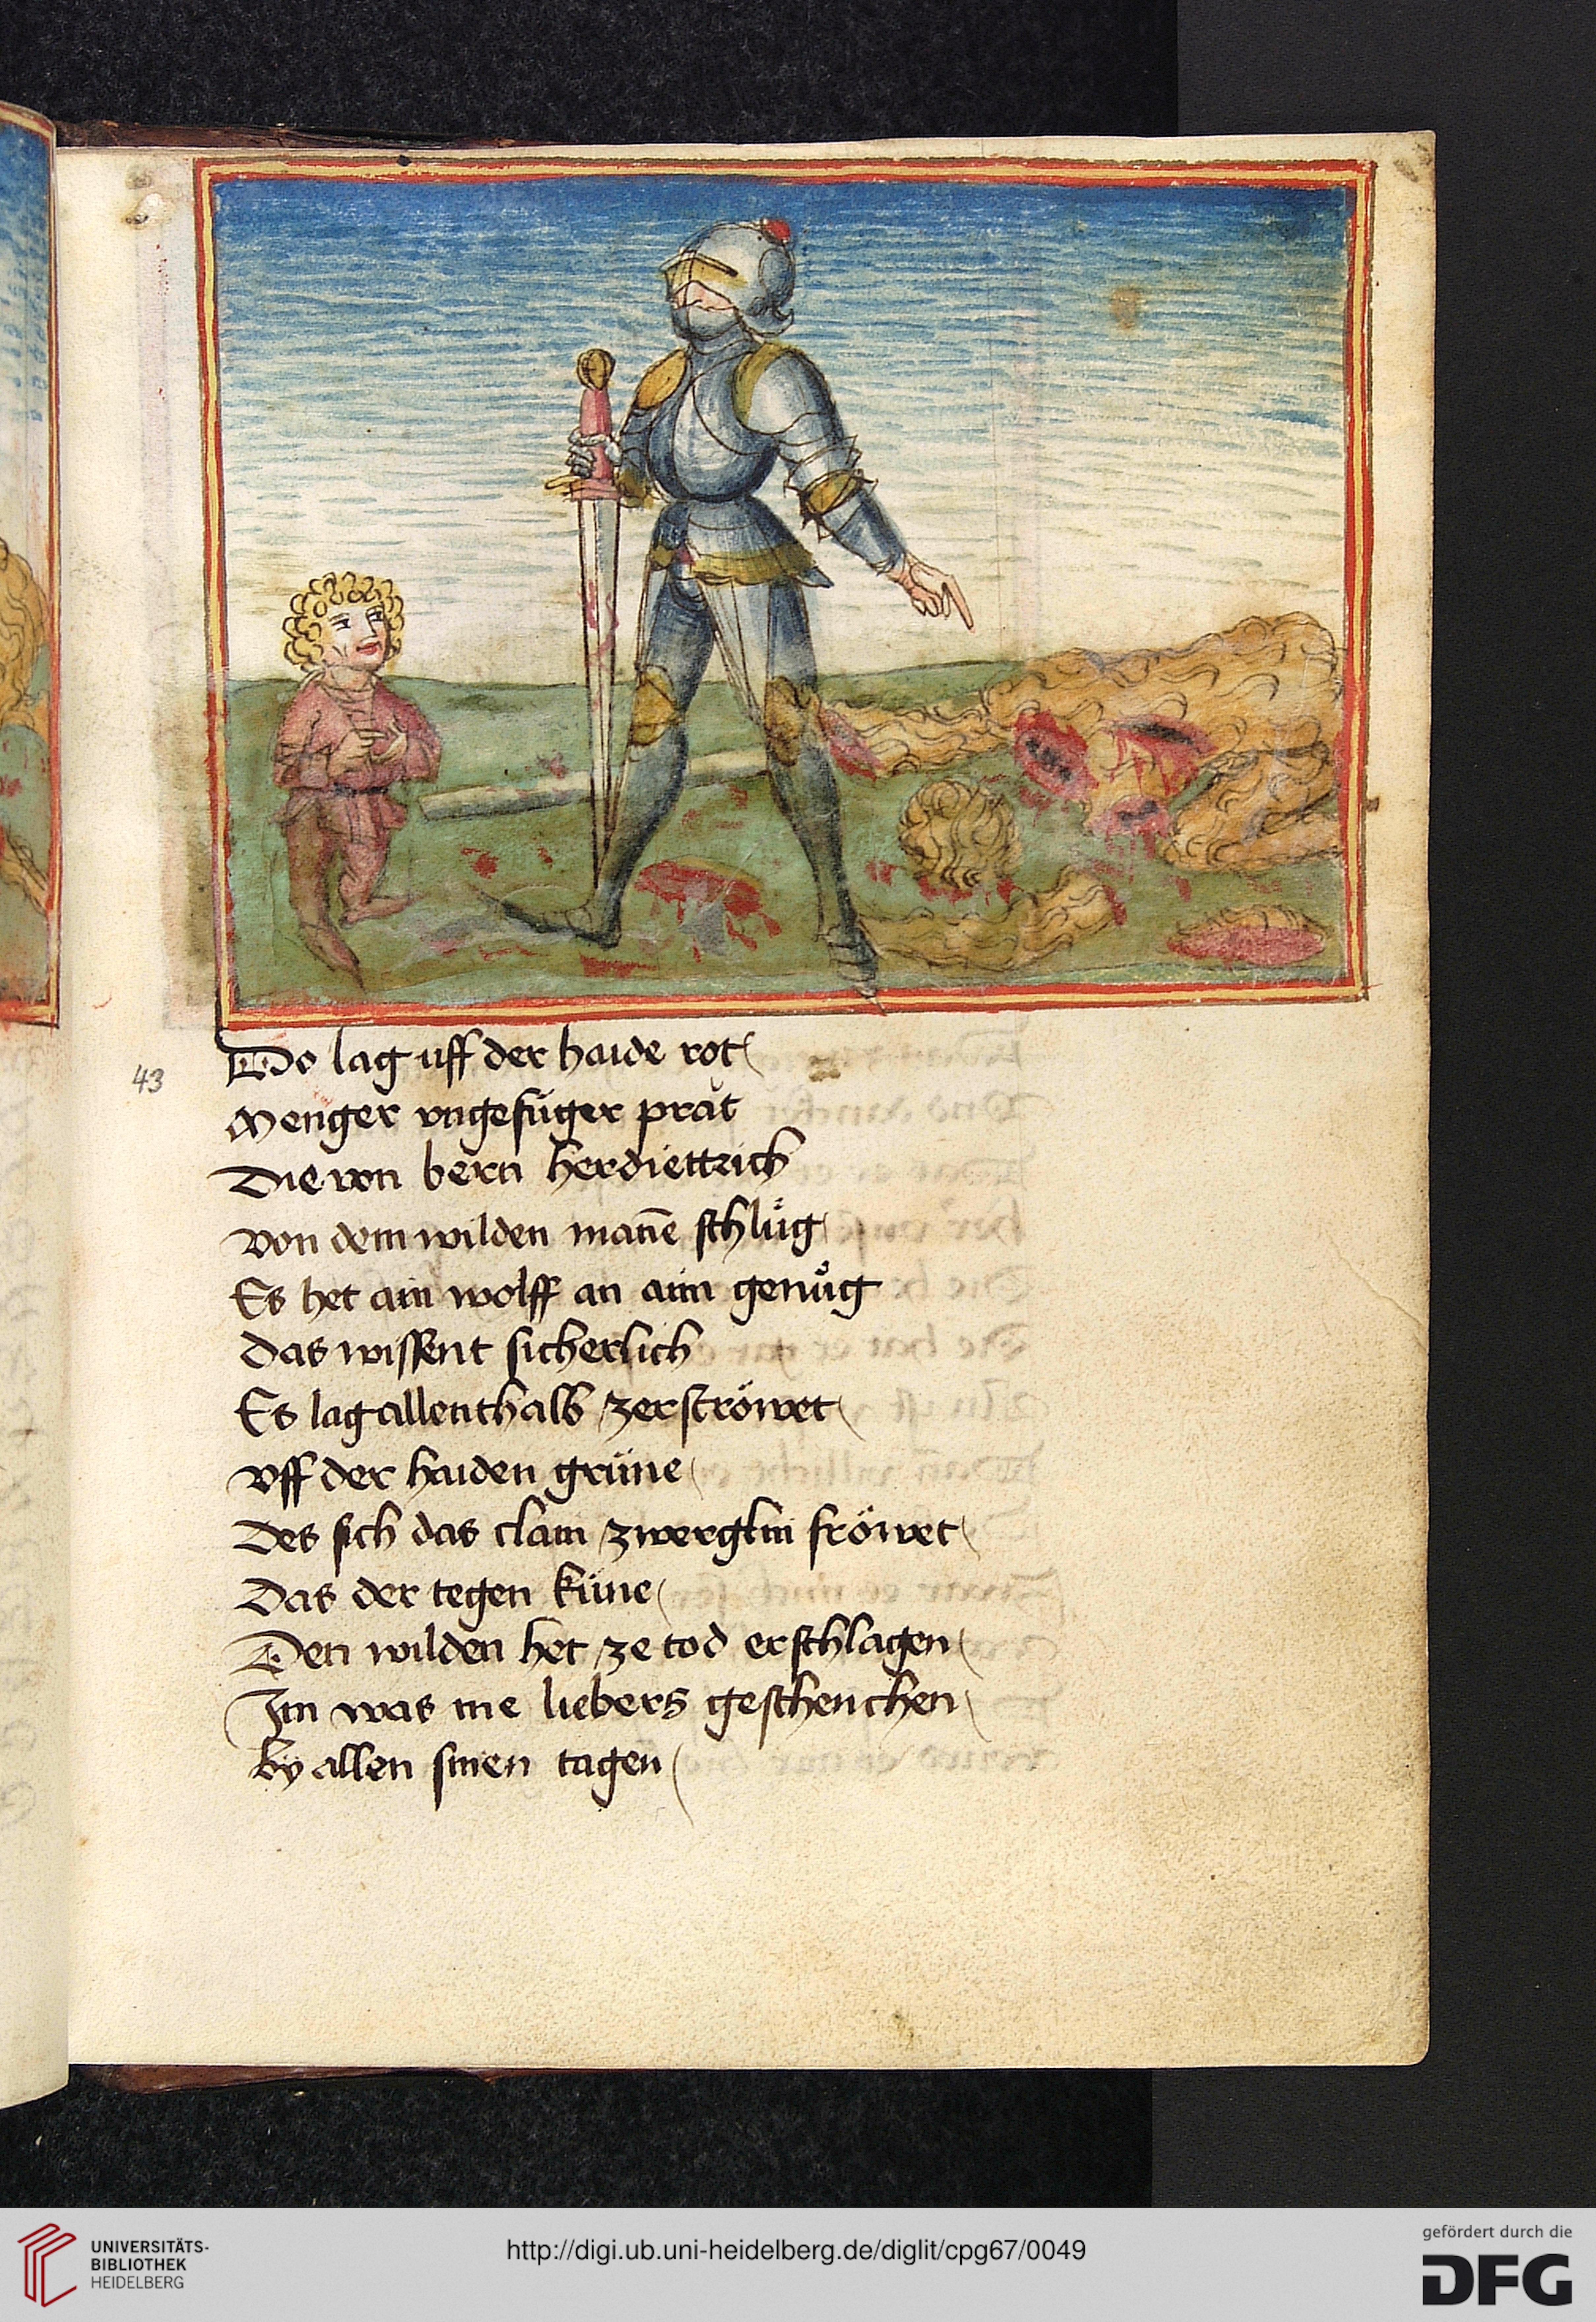 Do lag uff der haide rot
43
Menger vngefüger prat
Die von bern herdiettrich
Von dem wilden mañe schlůg
Es het ain wolff an aim genůg
Das wissent sicherlich
Es lag allenthalb zerströwet
Vff der haiden grüne
Des sich das clain zwerglin fröwet
Das der tegen küne
Den wilden het ze tod erschlagen
Im was nie liebers geschenchen
by allen sinen tagen
UNIVERSITÄTS-
BIBLIOTHEK
HEIDELBERG
http://digi.ub.uni-heidelberg.de/diglit/cpg67/0049
gefördert durch die
DFG